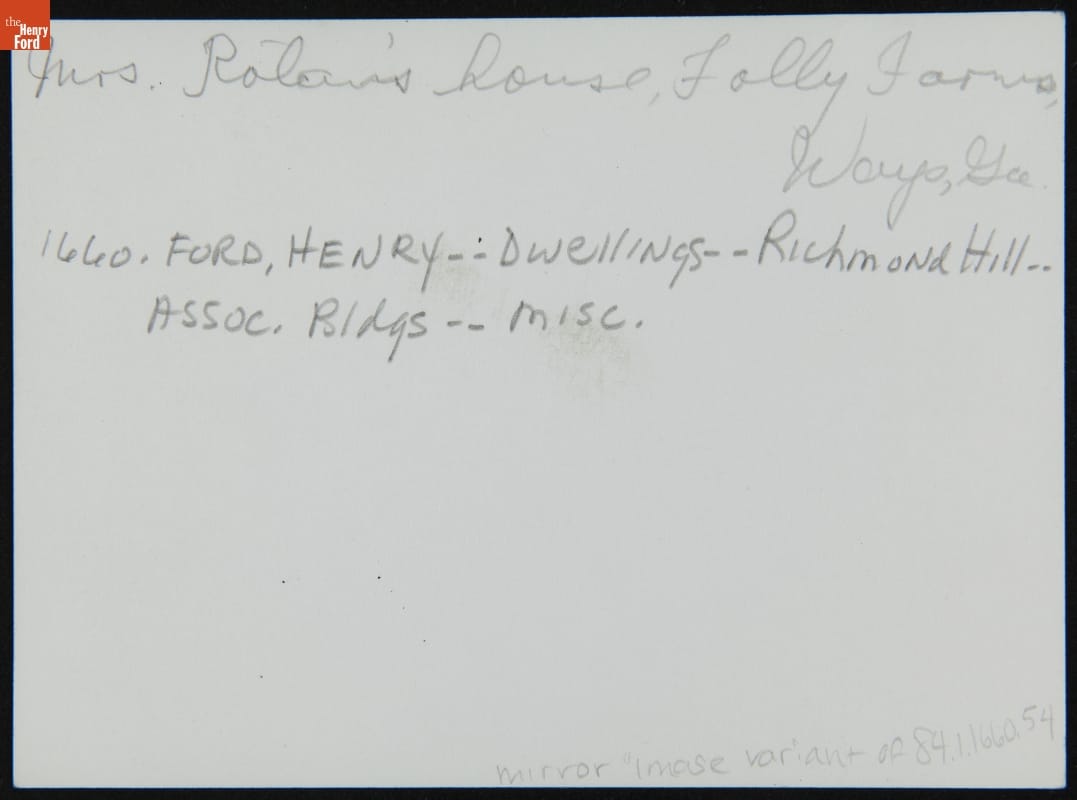 the Henry Ford
Mrs. Rotan's house, Folly Farms,
Ways, Ga.
1660. FORD, HENRY--Dwellings--Richmond Hill--
Assoc. Bldgs -- misc.
mirror "image variant of 84.1.1660.54